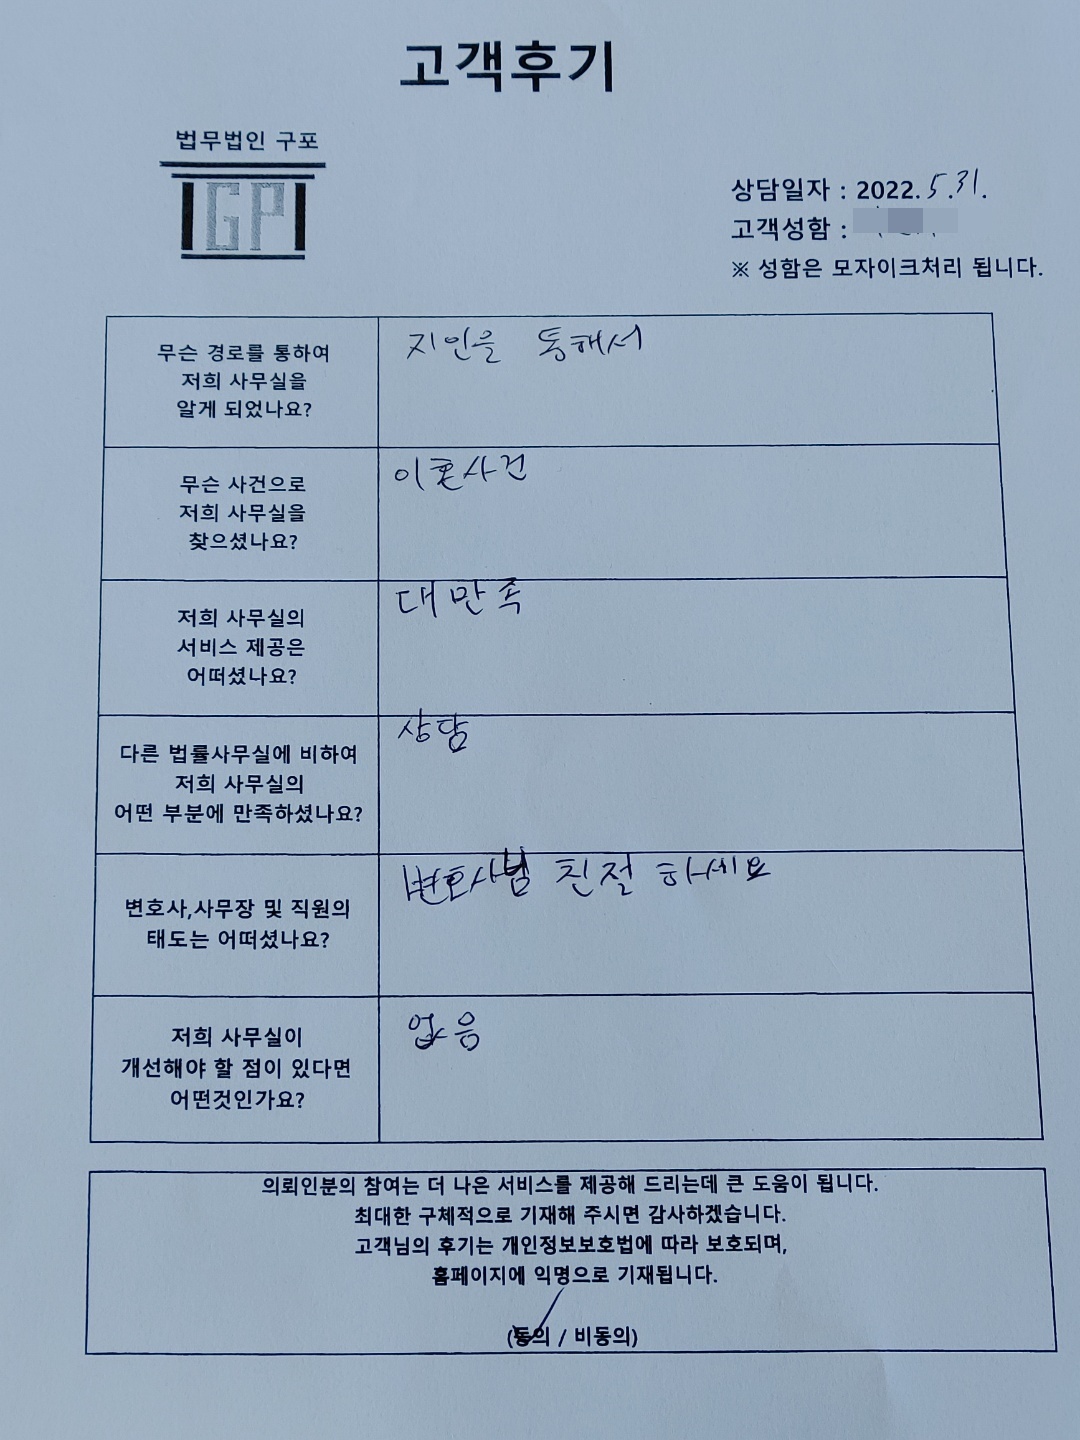 고객후기
법무법인 구포
IGPI
상담일자 : 2022. 5.31.
고객성함 :
※ 성함은 모자이크처리 됩니다.
무슨 경로를 통하여
저희 사무실을
알게 되었나요?
지인을 통해서
무슨 사건으로
저희 사무실을
찾으셨나요?
이혼사건
저희 사무실의
서비스 제공은
어떠셨나요?
대만족
다른 법률사무실에 비하여
저희 사무실의
어떤 부분에 만족하셨나요?
상담
변호사,사무장 및 직원의
태도는 어떠셨나요?
변호사님 친절 하세요
저희 사무실이
개선해야 할 점이 있다면
어떤것인가요?
없음
의뢰인분의 참여는 더 나은 서비스를 제공해 드리는데 큰 도움이 됩니다.
최대한 구체적으로 기재해 주시면 감사하겠습니다.
고객님의 후기는 개인정보보호법에 따라 보호되며,
홈페이지에 익명으로 기재됩니다.
(동의 / 비동의)